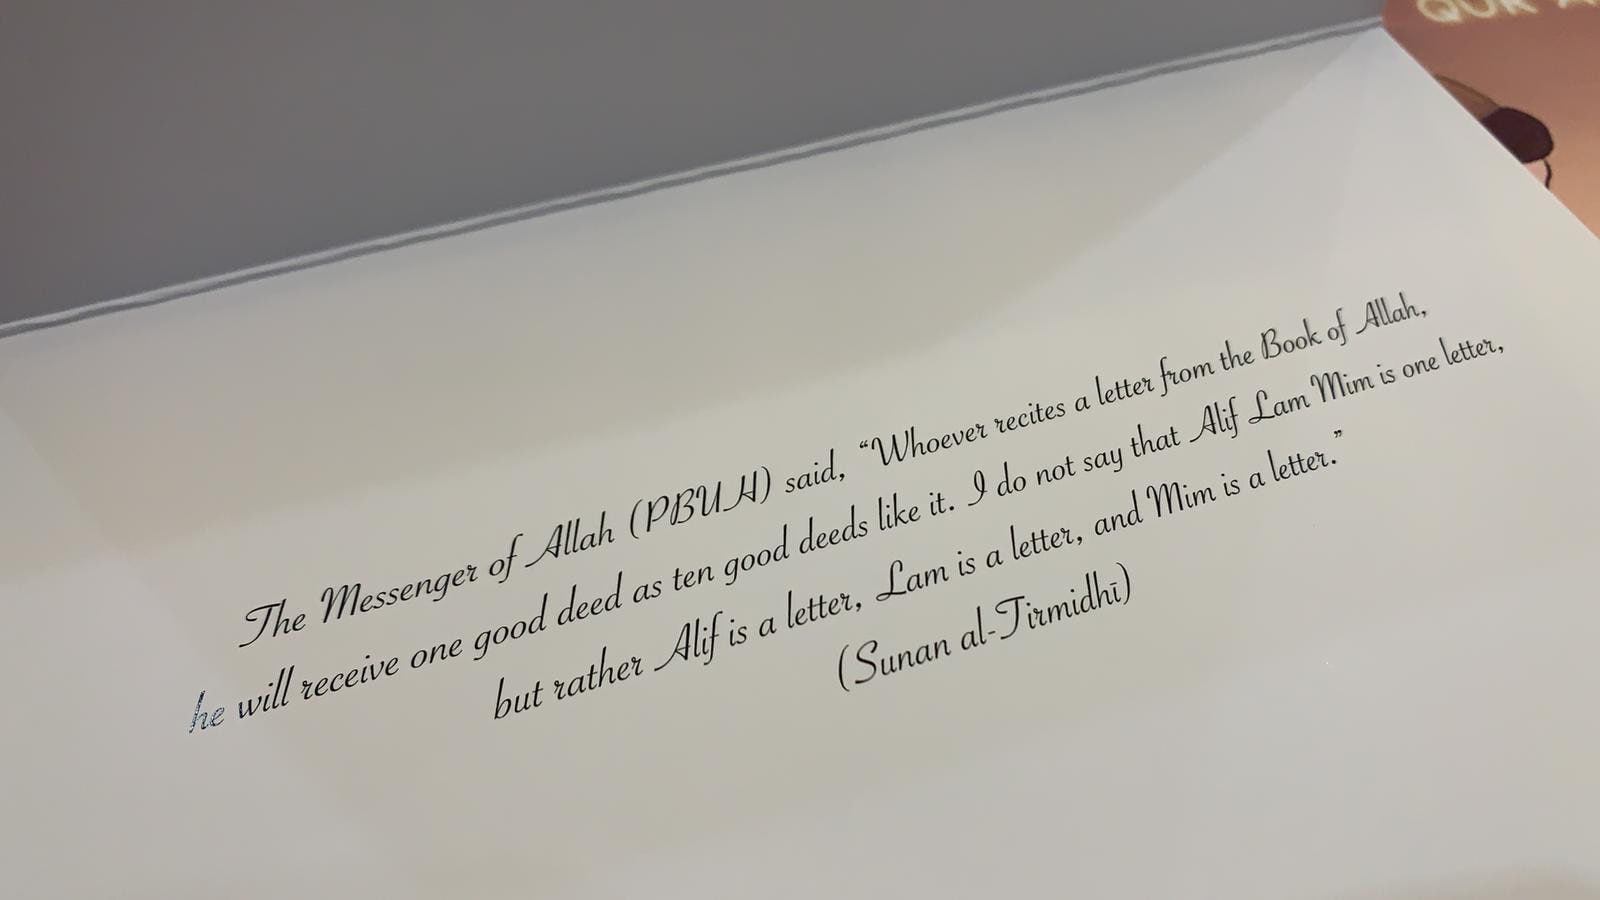 QUR'A
The Messenger of Allah (PBUH) said, “Whoever recites a letter from the Book of Allah,
he will receive one good deed as ten good deeds like it. I do not say that Alif Lam Mim is one letter,
but rather Alif is a letter, Lam is a letter, and Mim is a letter.”
(Sunan al-Tirmidhī)